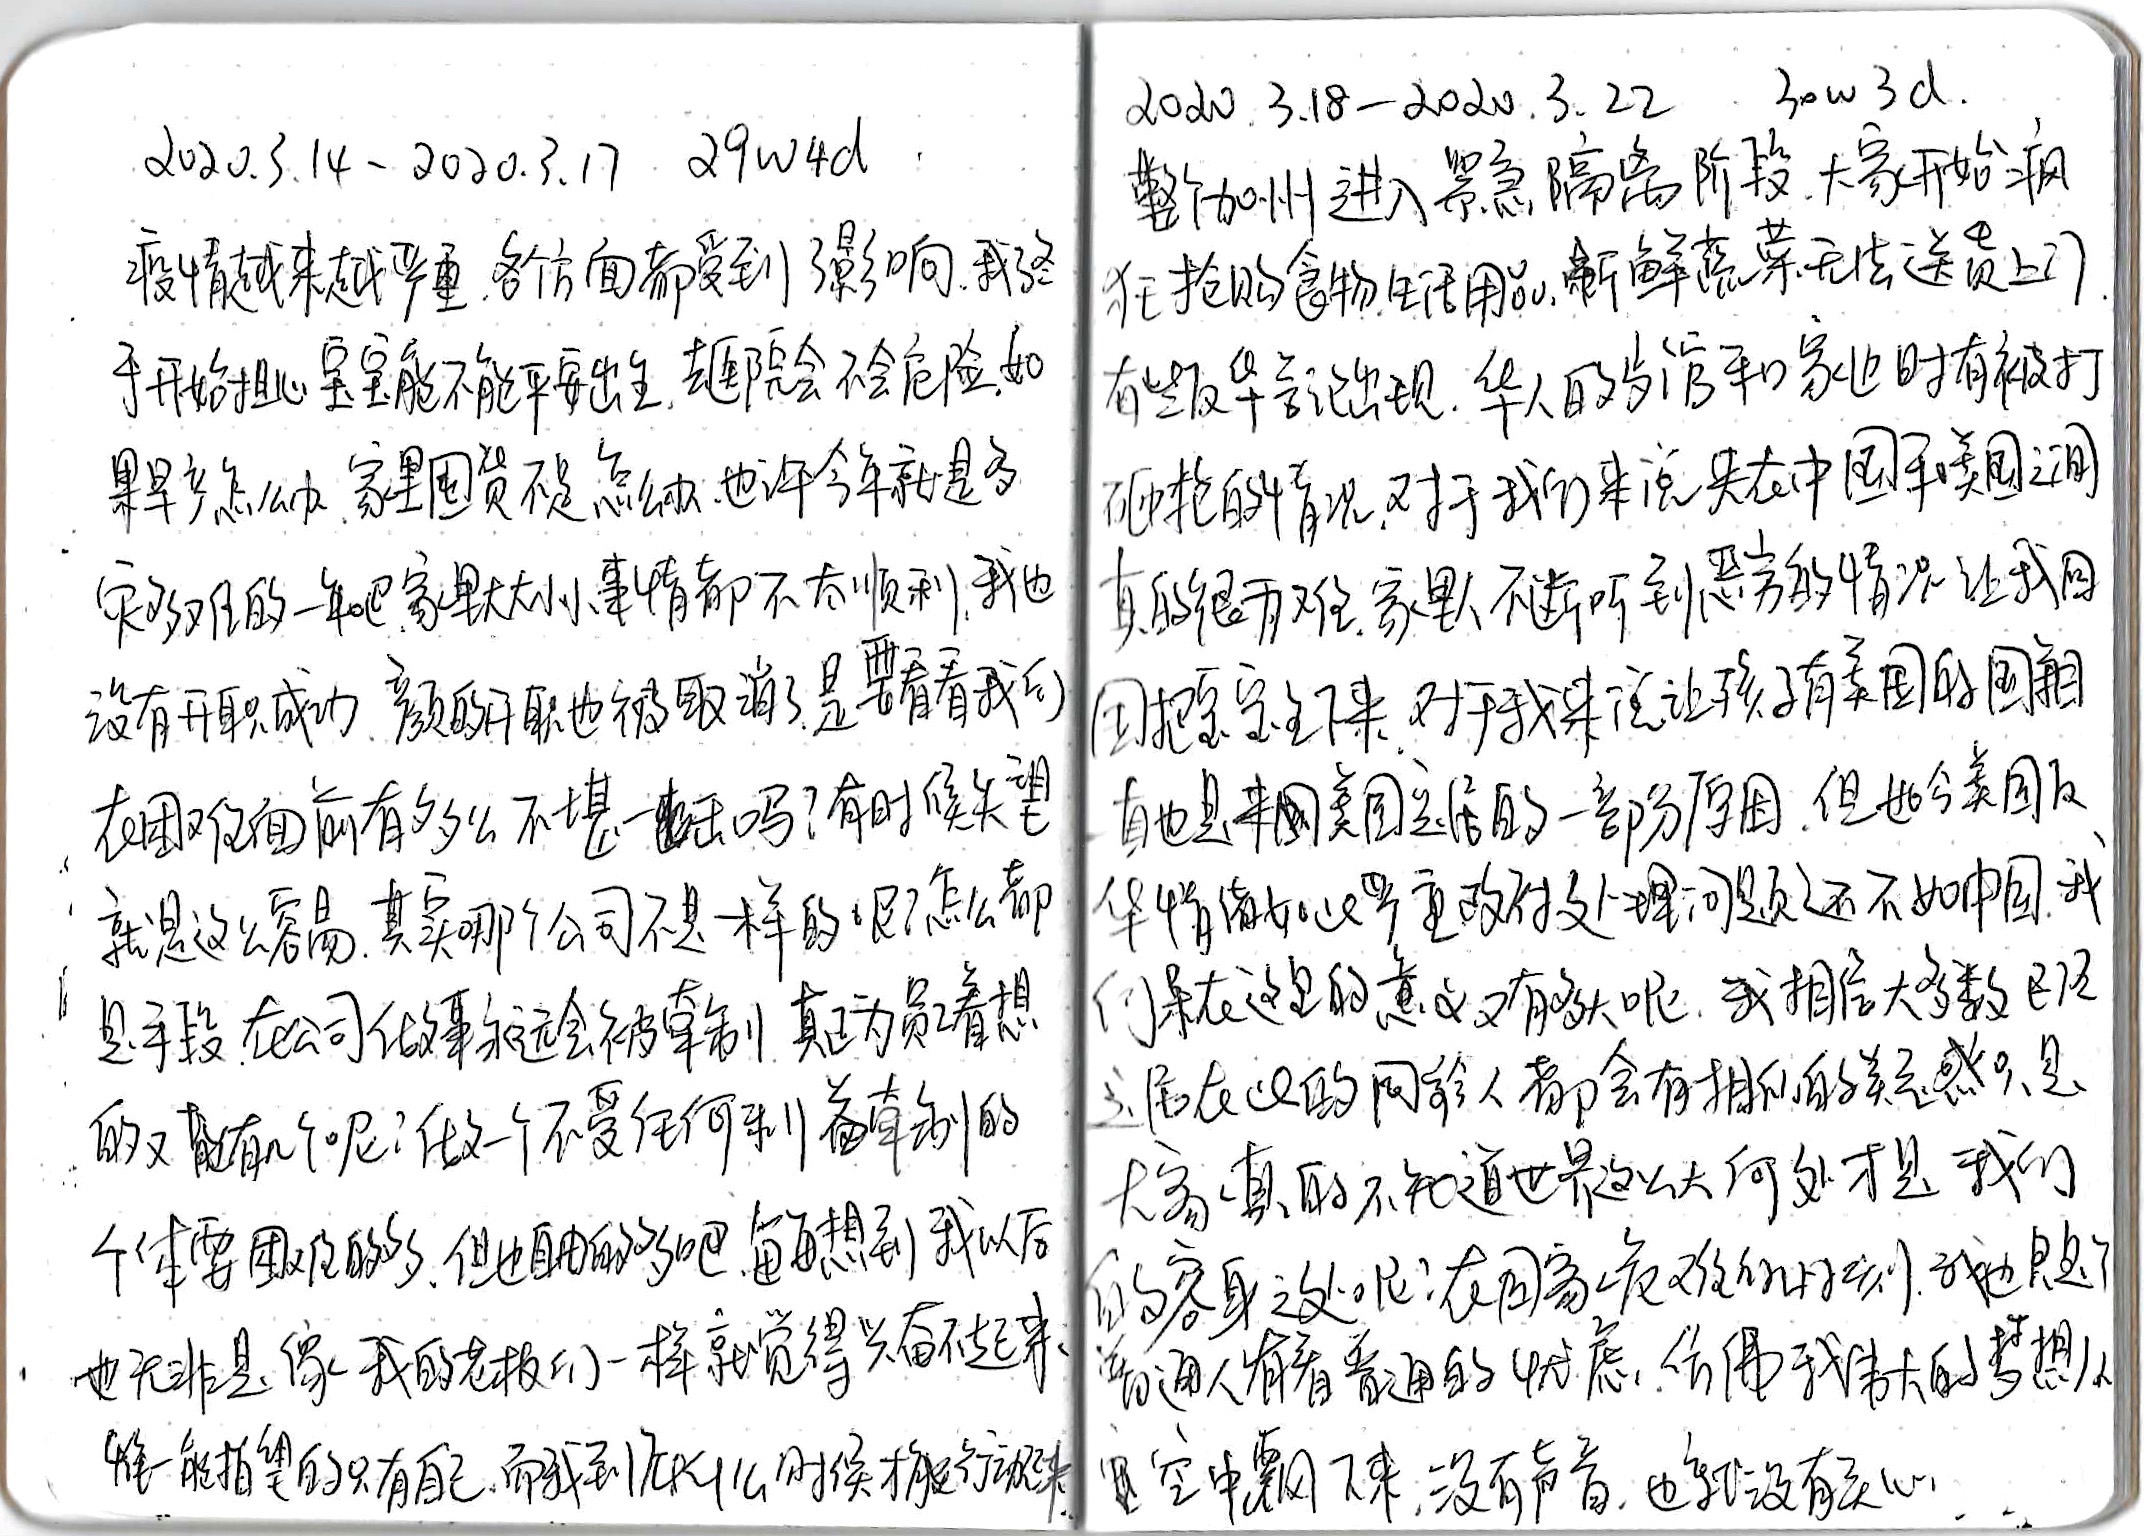 2020.3.14 - 2020.3.17 29w4d
疫情越来越严重.各个方面都受到了影响.我终
于开始担心宝宝能不能平安出生.去医院会不会危险.如
果早产怎么办.家里囤货不足怎么办.也许今年就是多
灾多难的一年吧.家里大大小小事情都不太顺利.我也
没有升职成功.颜的升职也被取消了.是要看看我们
在困难面前有多么不堪一击吗?有时候失望
就是这么容易.其实哪个公司不是一样的呢?怎么都
是手段.在公司做事永远会被牵制.真正为员工着想
的又能有几个呢?做一个不受任何利益牵制的
个体要困难的多.但也自由的多吧.每每想到我以后
也无非是像我的老板们一样就觉得兴奋不起来.
唯一能指望的只有自己.而我到底什么时候才能行动起来.
2020.3.18 - 2020.3.22 30w3d.
整个加州进入紧急隔离阶段.大家开始疯
狂抢购食物.生活用品.新鲜蔬菜无法送货上门.
有些反华言论出现.华人的餐馆和家也时有被打
砸抢的情况.对于我们来说夹在中国和美国之间
真的很为难.家里人不断听到恶劣的情况让我回
国把宝宝生下来.对于我来说让孩子有美国的国籍
真也是来美国定居的一部分原因.但如今美国反
华情绪如此严重政府处理问题还不如中国.我
们呆在这里的意义又有多大呢.我相信大多数已经
定居在此的同龄人都会有相似的疑惑只是
大家真的不知道世界这么大何处才是我们
的容身之处呢?在国家危难的时刻.我也只是个
普通人有着普通的忧虑.仿佛我伟大的梦想从
空中飘下来.没有声音.也就没有关心.